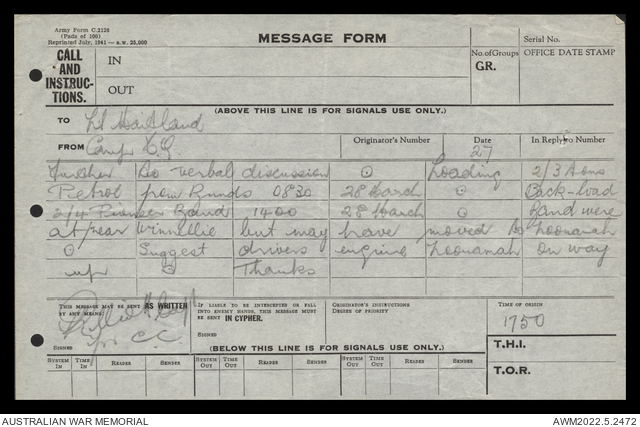 Army Form C.2128
(Pads of 100)
Reprinted July, 1941
MESSAGE FORM
Serial No.
CALL AND INSTRUCTIONS.
IN
OUT
No. of Groups
GR.
OFFICE DATE STAMP
(ABOVE THIS LINE IS FOR SIGNALS USE ONLY.)
TO Lt Maitland
FROM Camp
Originator's Number
Date 27
In Reply to Number
Further to verbal discussion ⊙ Loading 2/3 tons
Petrol from Runds 0830 28 March ⊙ Back-load
2/4 Pioneer Band 1400 28 March ⊙ Band were
at rear Winnellie but may have moved to Noonamah
⊙ Suggest drivers enquire Noonamah on way
up ⊙ Thanks
THIS MESSAGE MAY BE SENT AS WRITTEN BY ANY MEANS.
SIGNED
for C.C.
IF LIABLE TO BE INTERCEPTED OR FALL INTO ENEMY HANDS, THIS MESSAGE MUST BE SENT IN CYPHER.
SIGNED
ORIGINATOR'S INSTRUCTIONS
DEGREE OF PRIORITY
TIME OF ORIGIN
1750
T.H.I.
T.O.R.
(BELOW THIS LINE IS FOR SIGNALS USE ONLY.)
SYSTEM IN TIME IN READER SENDER SYSTEM OUT TIME OUT READER SENDER SYSTEM OUT TIME OUT READER SENDER
AUSTRALIAN WAR MEMORIAL
AWM2022.5.2472